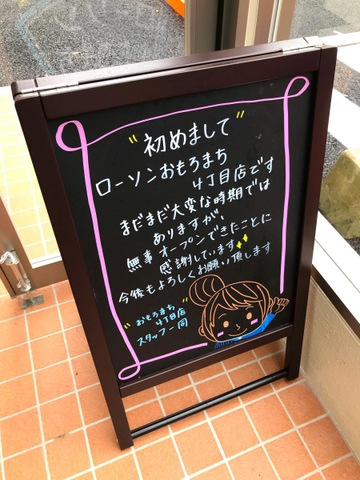 "初めまして"
ローソンおもろまち
4丁目店です
まだまだ大変な時期では
ありますが
無事オープンできたことに
感謝しています
今後もよろしくお願い頂します
"おもろまち
4丁目店
スタッフ一同"